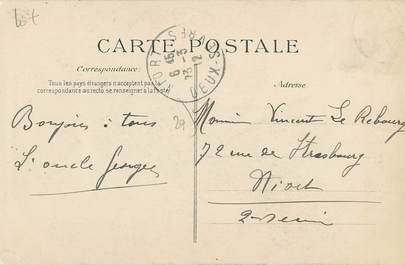 CARTE POSTALE
Correspondance
Tous les pays étrangers n'acceptent pas la
correspondance au recto, se renseigner à la Poste
Adresse
DEUX-SÈVRES
6 45
23-3
12
29
Bonjour à tous
L'oncle Georges
Monsieur Vincent Le Rebourg
72 rue de Strasbourg
Niort
2-Sèvres